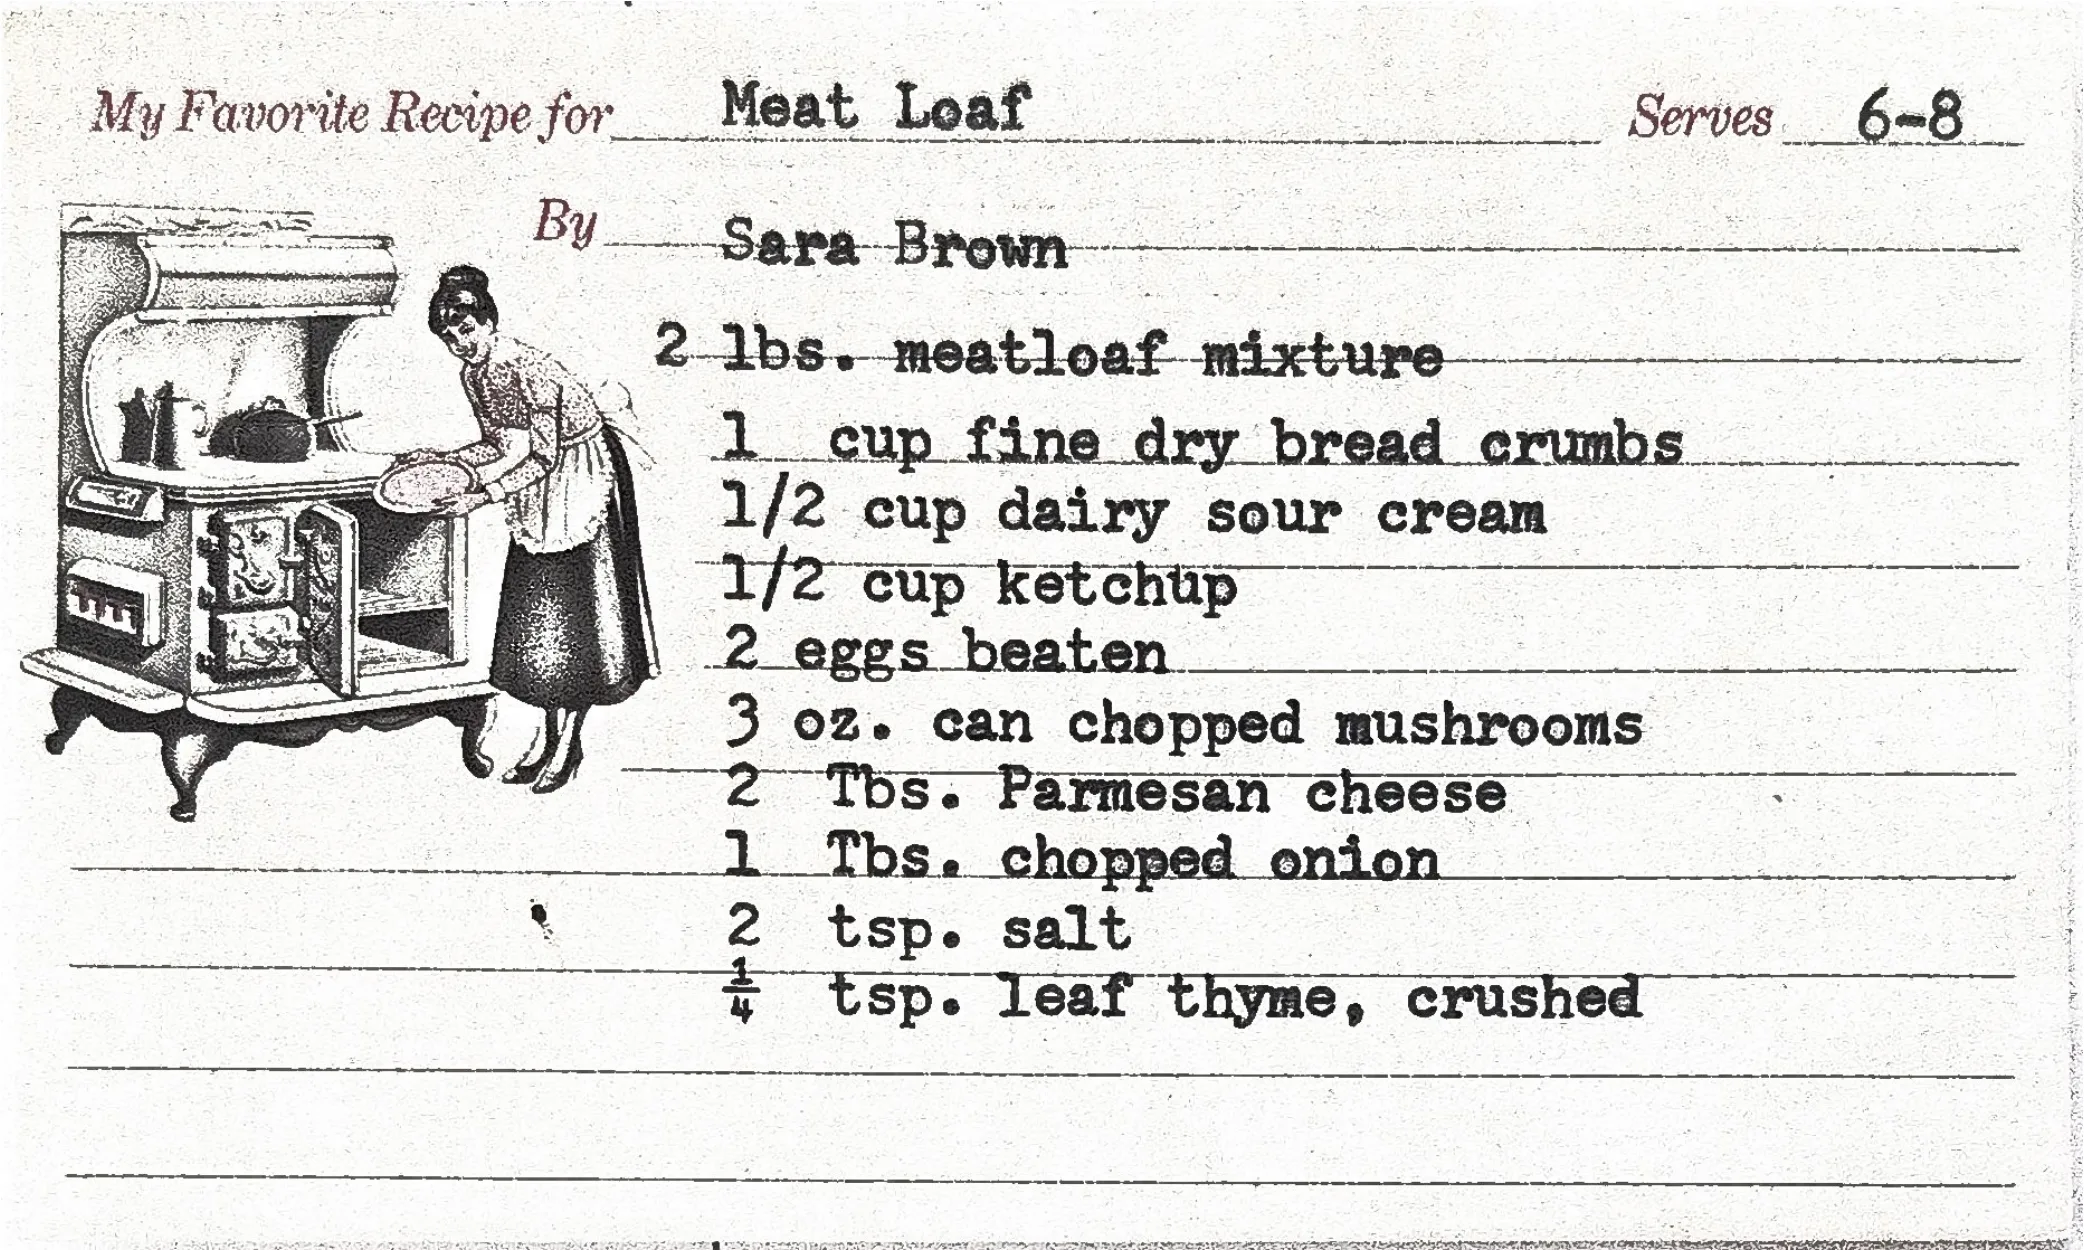 My Favorite Recipe for Meat Loaf Serves 6-8
By Sara Brown
2 lbs. meatloaf mixture
1 cup fine dry bread crumbs
1/2 cup dairy sour cream
1/2 cup ketchup
2 eggs beaten
3 oz. can chopped mushrooms
2 Tbs. Parmesan cheese
1 Tbs. chopped onion
2 tsp. salt
1/4 tsp. leaf thyme, crushed